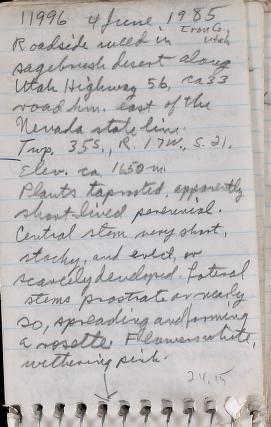 11996 4 June 1985
Iron Co., Utah
Roadside weed in
sagebrush desert along
Utah Highway 56, ca 33
road km. east of the
Nevada state line.
Twp. 35S., R. 17W., S. 21.
Elev. ca. 1650 m.
Plants taprooted, apparently
short-lived perennial.
Central stem very short,
stocky, and erect, or
scarcely developed. Lateral
stems prostrate or nearly
so, spreading and forming
a rosette. Flowers white,
withering pink.